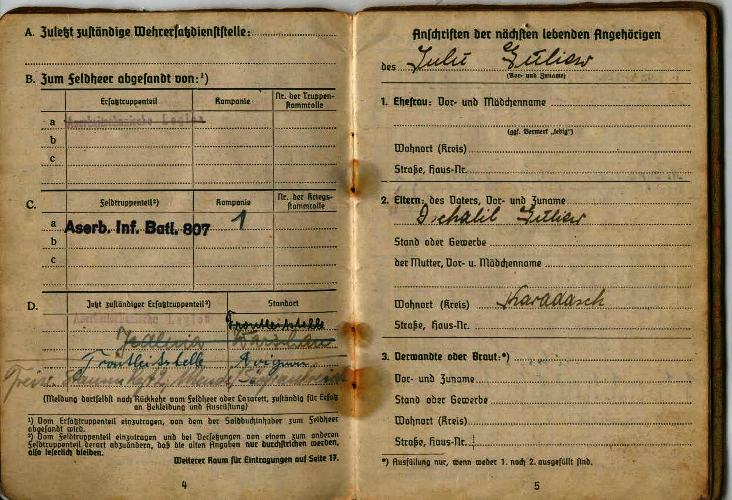 A. Zuletzt zuständige Wehrersatzdienststelle:
B. Zum Feldheer abgesandt von:¹)
Ersatztruppenteil Kompanie Nr. der Truppen-
stammrolle
a Aserbeidschanische Legion
b
c
C. Feldtruppenteil²) Kompanie Nr. der Kriegs-
stammrolle
a Aserb. Inf. Batl. 807 1
b
c
D. Jetzt zuständiger Ersatztruppenteil²) Standort
Aserbeidschanische Legion Frontleitstelle
Jedlnia Warschau
Frontleitstelle Avignon
(Meldung dortselbst nach Rückkehr vom Feldheer oder Lazarett, zuständig für Ersatz
an Bekleidung und Ausrüstung)
¹) Vom Ersatztruppenteil einzutragen, von dem der Soldbuchinhaber zum Feldheer
abgesandt wird.
²) Vom Feldtruppenteil einzutragen und bei Versetzungen von einem zum anderen
Feldtruppenteil derart abzuändern, daß die alten Angaben nur durchstrichen werden,
also leserlich bleiben.
Weiterer Raum für Eintragungen auf Seite 17.
4
Anschriften der nächsten lebenden Angehörigen
des Julu Guliew
(Vor- und Zuname)
1. Ehefrau: Vor- und Mädchenname
(ggf. Vermerk „ledig“)
Wohnort (Kreis)
Straße, Haus-Nr.
2. Eltern: des Vaters, Vor- und Zuname
Dschalil Guliew
Stand oder Gewerbe
der Mutter, Vor- u. Mädchenname
Wohnort (Kreis) Karadasch
Straße, Haus-Nr.
3. Verwandte oder Braut:*)
Vor- und Zuname
Stand oder Gewerbe
Wohnort (Kreis)
Straße, Haus-Nr.
*) Ausfüllung nur, wenn weder 1. noch 2. ausgefüllt sind.
5